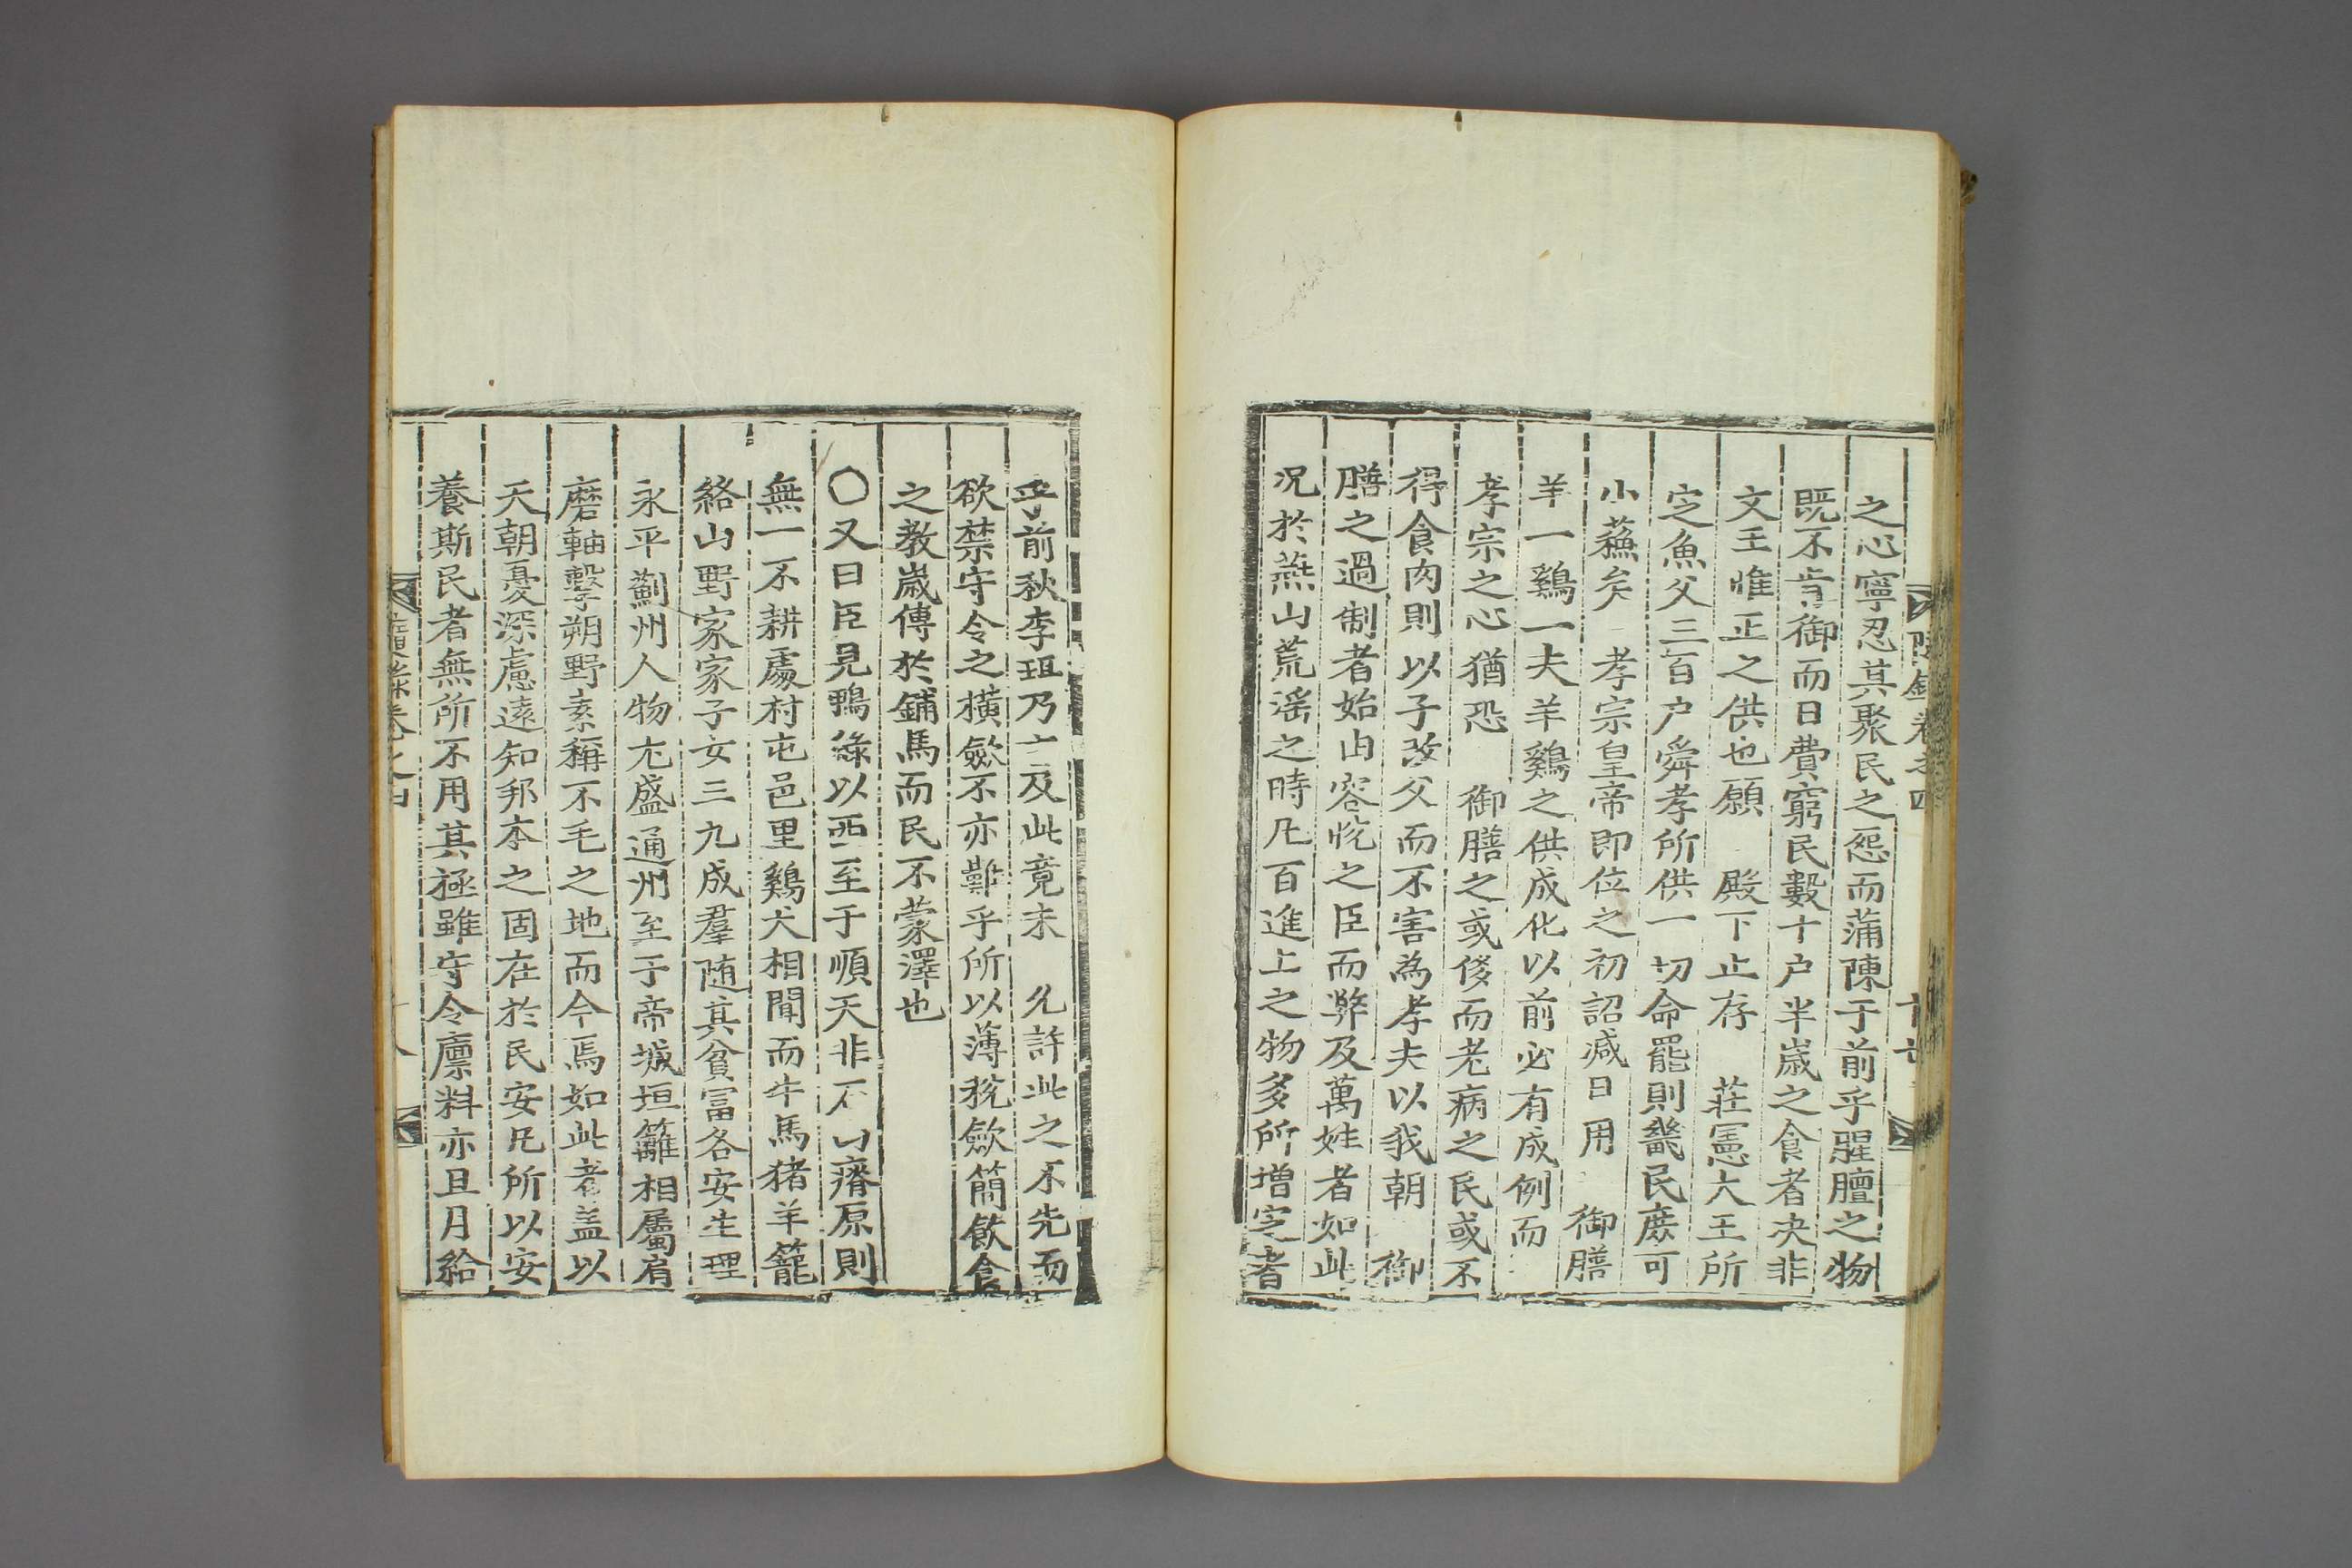 之心寧忍其聚民之怨而蒲陳于前乎腥膻之物
既不肯御而日費窮民數十户半歲之食者决非
文王惟正之供也願 殿下止存 莊憲大王所
定魚父三百户舜孝所供一切命罷則畿民庶可
小蘓矣 孝宗皇帝即位之初詔减日用 御膳
羊一鷄一夫羊鷄之供成化以前必有成例而
孝宗之心猶恐 御膳之或侈而老病之民或不
得食肉則以子改父而不害為孝夫以我朝 御
膳之過制者始由容恱之臣而弊及萬姓者如此
况於燕山荒滛之時凡百進上之物多所增定者
乎前秋李珥乃言及此竟未 允許此之不先而
欲禁守令之橫歛不亦難乎所以薄稅歛簡飲食
之教歲傳於鋪馬而民不蒙澤也
〇又曰臣見鴨綠以西至于順天非不山瘠原則
無一不耕處村屯邑里鷄犬相聞而牛馬猪羊籠
絡山野家家子女三九成羣随其貧冨各安生理
永平薊州人物尤盛通州至于帝城垣籬相屬肩
磨軸擊朔野素稱不毛之地而今焉如此者盖以
天朝憂深慮遠知邦本之固在於民安凡所以安
養斯民者無所不用其極雖守令廪料亦且月給